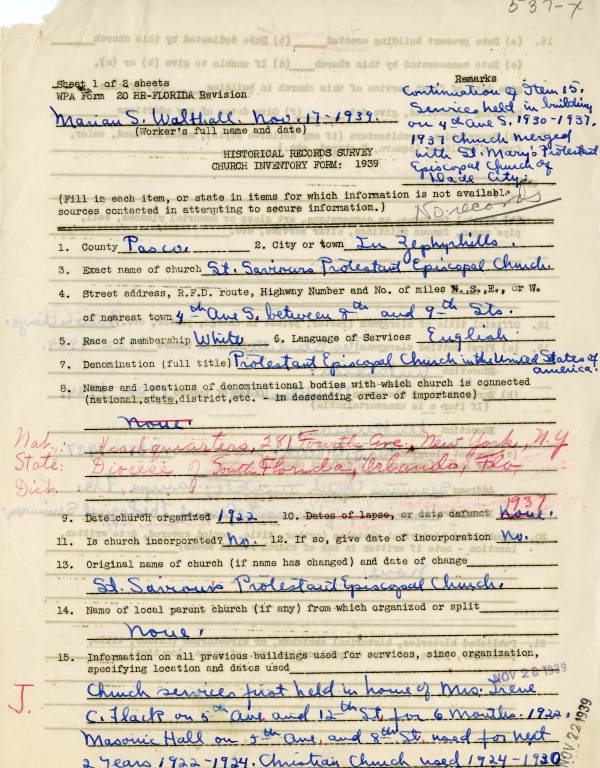 537-X
Sheet 1 of 2 sheets
WPA Form 20 HR-FLORIDA Revision
Marian S. Walthall. Nov. 17-1939.
(Worker's full name and date)
Remarks
Continuation of Item 15.
Services held in building
on 4th Ave S. 1930-1937.
1937 Church merged
with St. Mary's Protestant
Episcopal Church of
Dade City.
HISTORICAL RECORDS SURVEY
CHURCH INVENTORY FORM: 1939
(Fill in each item, or state in items for which information is not available
sources contacted in attempting to secure information.)
No records
1. County Pasco. 2. City or town In Zephyrhills.
3. Exact name of church St. Saviours Protestant Episcopal Church.
4. Street address, R.F.D. route, Highway Number and No. of miles N.,S.,E., or W.
of nearest town 4th Ave S. between 8th and 9th Sts.
5. Race of membership White 6. Language of Services English
7. Denomination (full title) Protestant Episcopal Church in the United States of
america.
8. Names and locations of denominational bodies with which church is connected
(national,state,district,etc. - in descending order of importance)
None.
Nat.: Headquarters, 281 Fourth Ave., New York, N.Y
State: Diocese of South Florida, Orlando, Fla
Dist.
9. Date church organized 1922 10. Dates of lapse, or date defunct None. 1937
11. Is church incorporated? No. 12. If so, give date of incorporation No.
13. Original name of church (if name has changed) and date of change
St. Saviour's Protestant Episcopal Church.
14. Name of local parent church (if any) from which organized or split
None.
15. Information on all previous buildings used for services, since organization,
specifying location and dates used
NOV 28 1939
J.
Church services first held in home of Mrs. Irene
C. Flack on 5th Ave. and 12th St. for 6 Months. 1922.
Masonic Hall on 5th Ave. and 8th St. used for next
2 Years 1922-1924. Christian Church used 1924-1930
NOV 22 1939